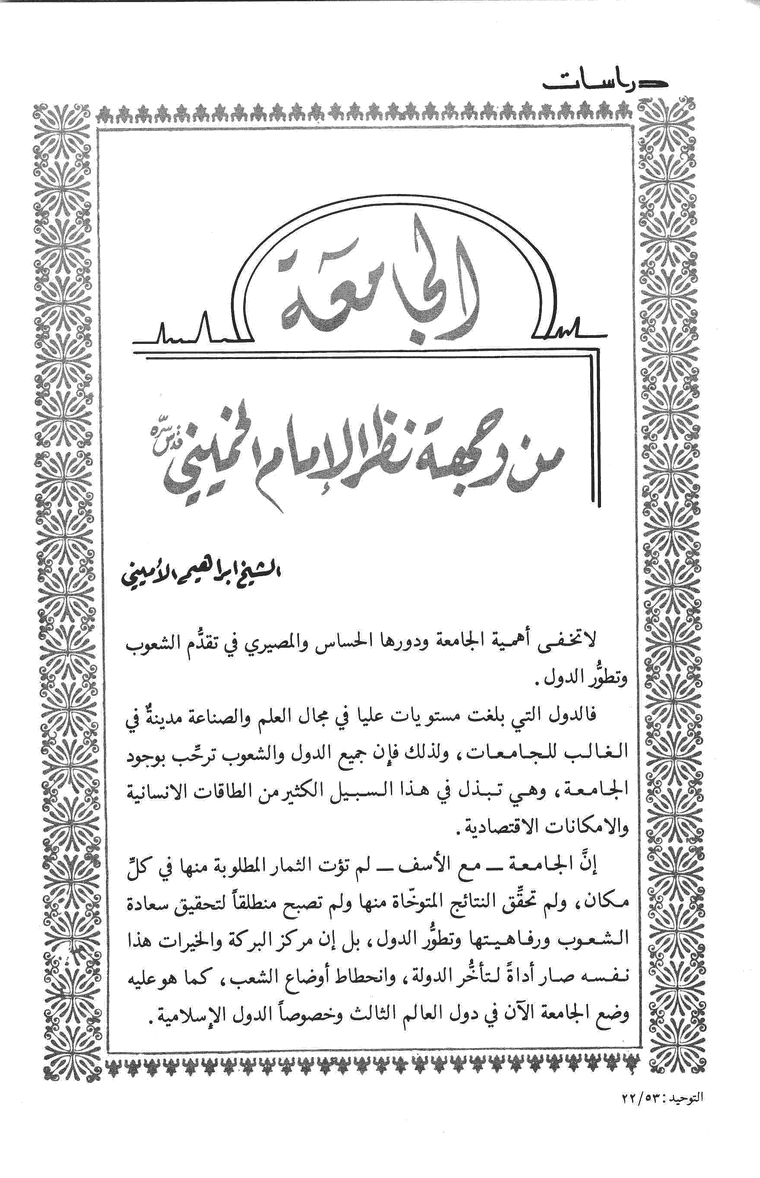 دراسات
الجامعة
من وجهة نظر الإمام الخميني قدس سره
الشيخ ابراهيم الأميني
لا تخفى أهمية الجامعة ودورها الحساس والمصيري في تقدُّم الشعوب
وتطوُّر الدول .
فالدول التي بلغت مستويات عليا في مجال العلم والصناعة مدينةٌ في
الغالب للجامعات، ولذلك فإن جميع الدول والشعوب ترحِّب بوجود
الجامعة، وهي تبذل في هذا السبيل الكثير من الطاقات الانسانية
والامكانات الاقتصادية .
إنَّ الجامعة ــ مع الأسف ــ لم تؤت الثمار المطلوبة منها في كلِّ
مكان، ولم تحقِّق النتائج المتوخّاة منها ولم تصبح منطلقاً لتحقيق سعادة
الشعوب ورفاهيتها وتطوُّر الدول، بل إن مركز البركة والخيرات هذا
نفسه صار أداةً لتأخُّر الدولة، وانحطاط أوضاع الشعب، كما هو عليه
وضع الجامعة الآن في دول العالم الثالث وخصوصاً الدول الإسلامية .
التوحيد : ٥٣ / ٢٢